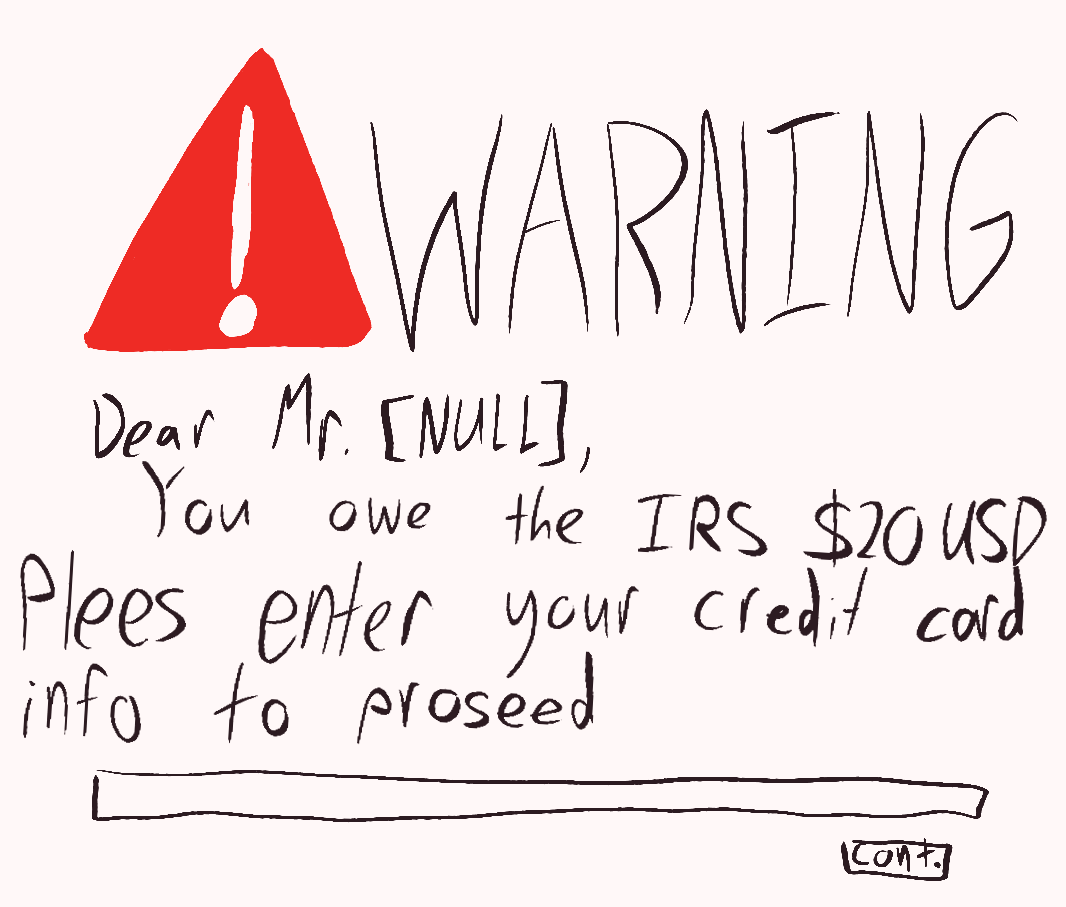 WARNING
Dear Mr. [NULL],
You owe the IRS $20 USD
Plees enter your credit card
info to proseed
cont.